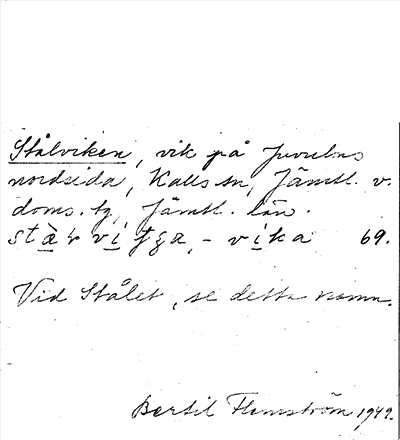 Stålviken, vik på Juvulns
nordsida, Kalls sn, Jämtl. v.
doms. tg, Jämtl. län.
vika 69.
Vid Stålet, se detta namn.
Bertil Flemström 1942.